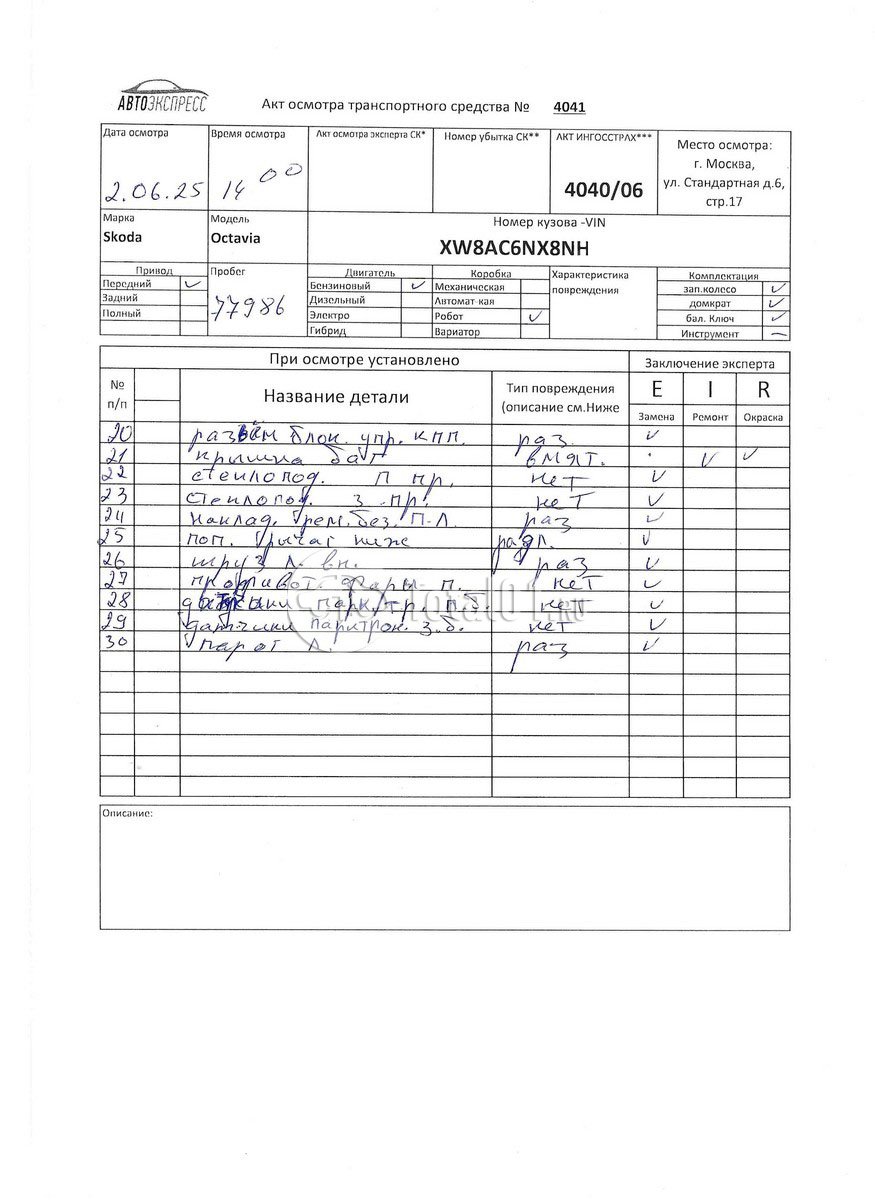 АВТОЭКСПРЕСС
Акт осмотра транспортного средства № 4041
Дата осмотра Время осмотра Акт осмотра эксперта СК* Номер убытка СК** АКТ ИНГОССТРАХ*** Место осмотра:
г. Москва,
2.06.25 14 00 4040/06 ул. Стандартная д.6,
стр.17
Марка Модель Номер кузова -VIN
Skoda Octavia XW8AC6NX8NH
Привод Пробег Двигатель Коробка Характеристика Комплектация
Передний ✓ Бензиновый ✓ Механическая повреждения зап.колесо ✓
Задний 77986 Дизельный Автомат-кая домкрат ✓
Полный Электро Робот ✓ бал. Ключ ✓
Гибрид Вариатор Инструмент —
При осмотре установлено Заключение эксперта
№ п/п Название детали Тип повреждения (описание см.Ниже E I R
Замена Ремонт Окраска
20 разъём блок. упр. КПП. раз ✓
21 крышка баг вмят. ✓ ✓
22 стеклопод. П пр. нет ✓
23 стеклопод. З пр. нет ✓
24 наклад. рем. без. П-Л. раз ✓
25 поп. рычаг ниж ✓
26 шруз л. вн. раз ✓
27 фары п. нет ✓
28 датчики парк.тр. п.б. нет ✓
29 датчики парктрон. з.б. нет ✓
30 Л. раз ✓
Total01.RU
Описание: